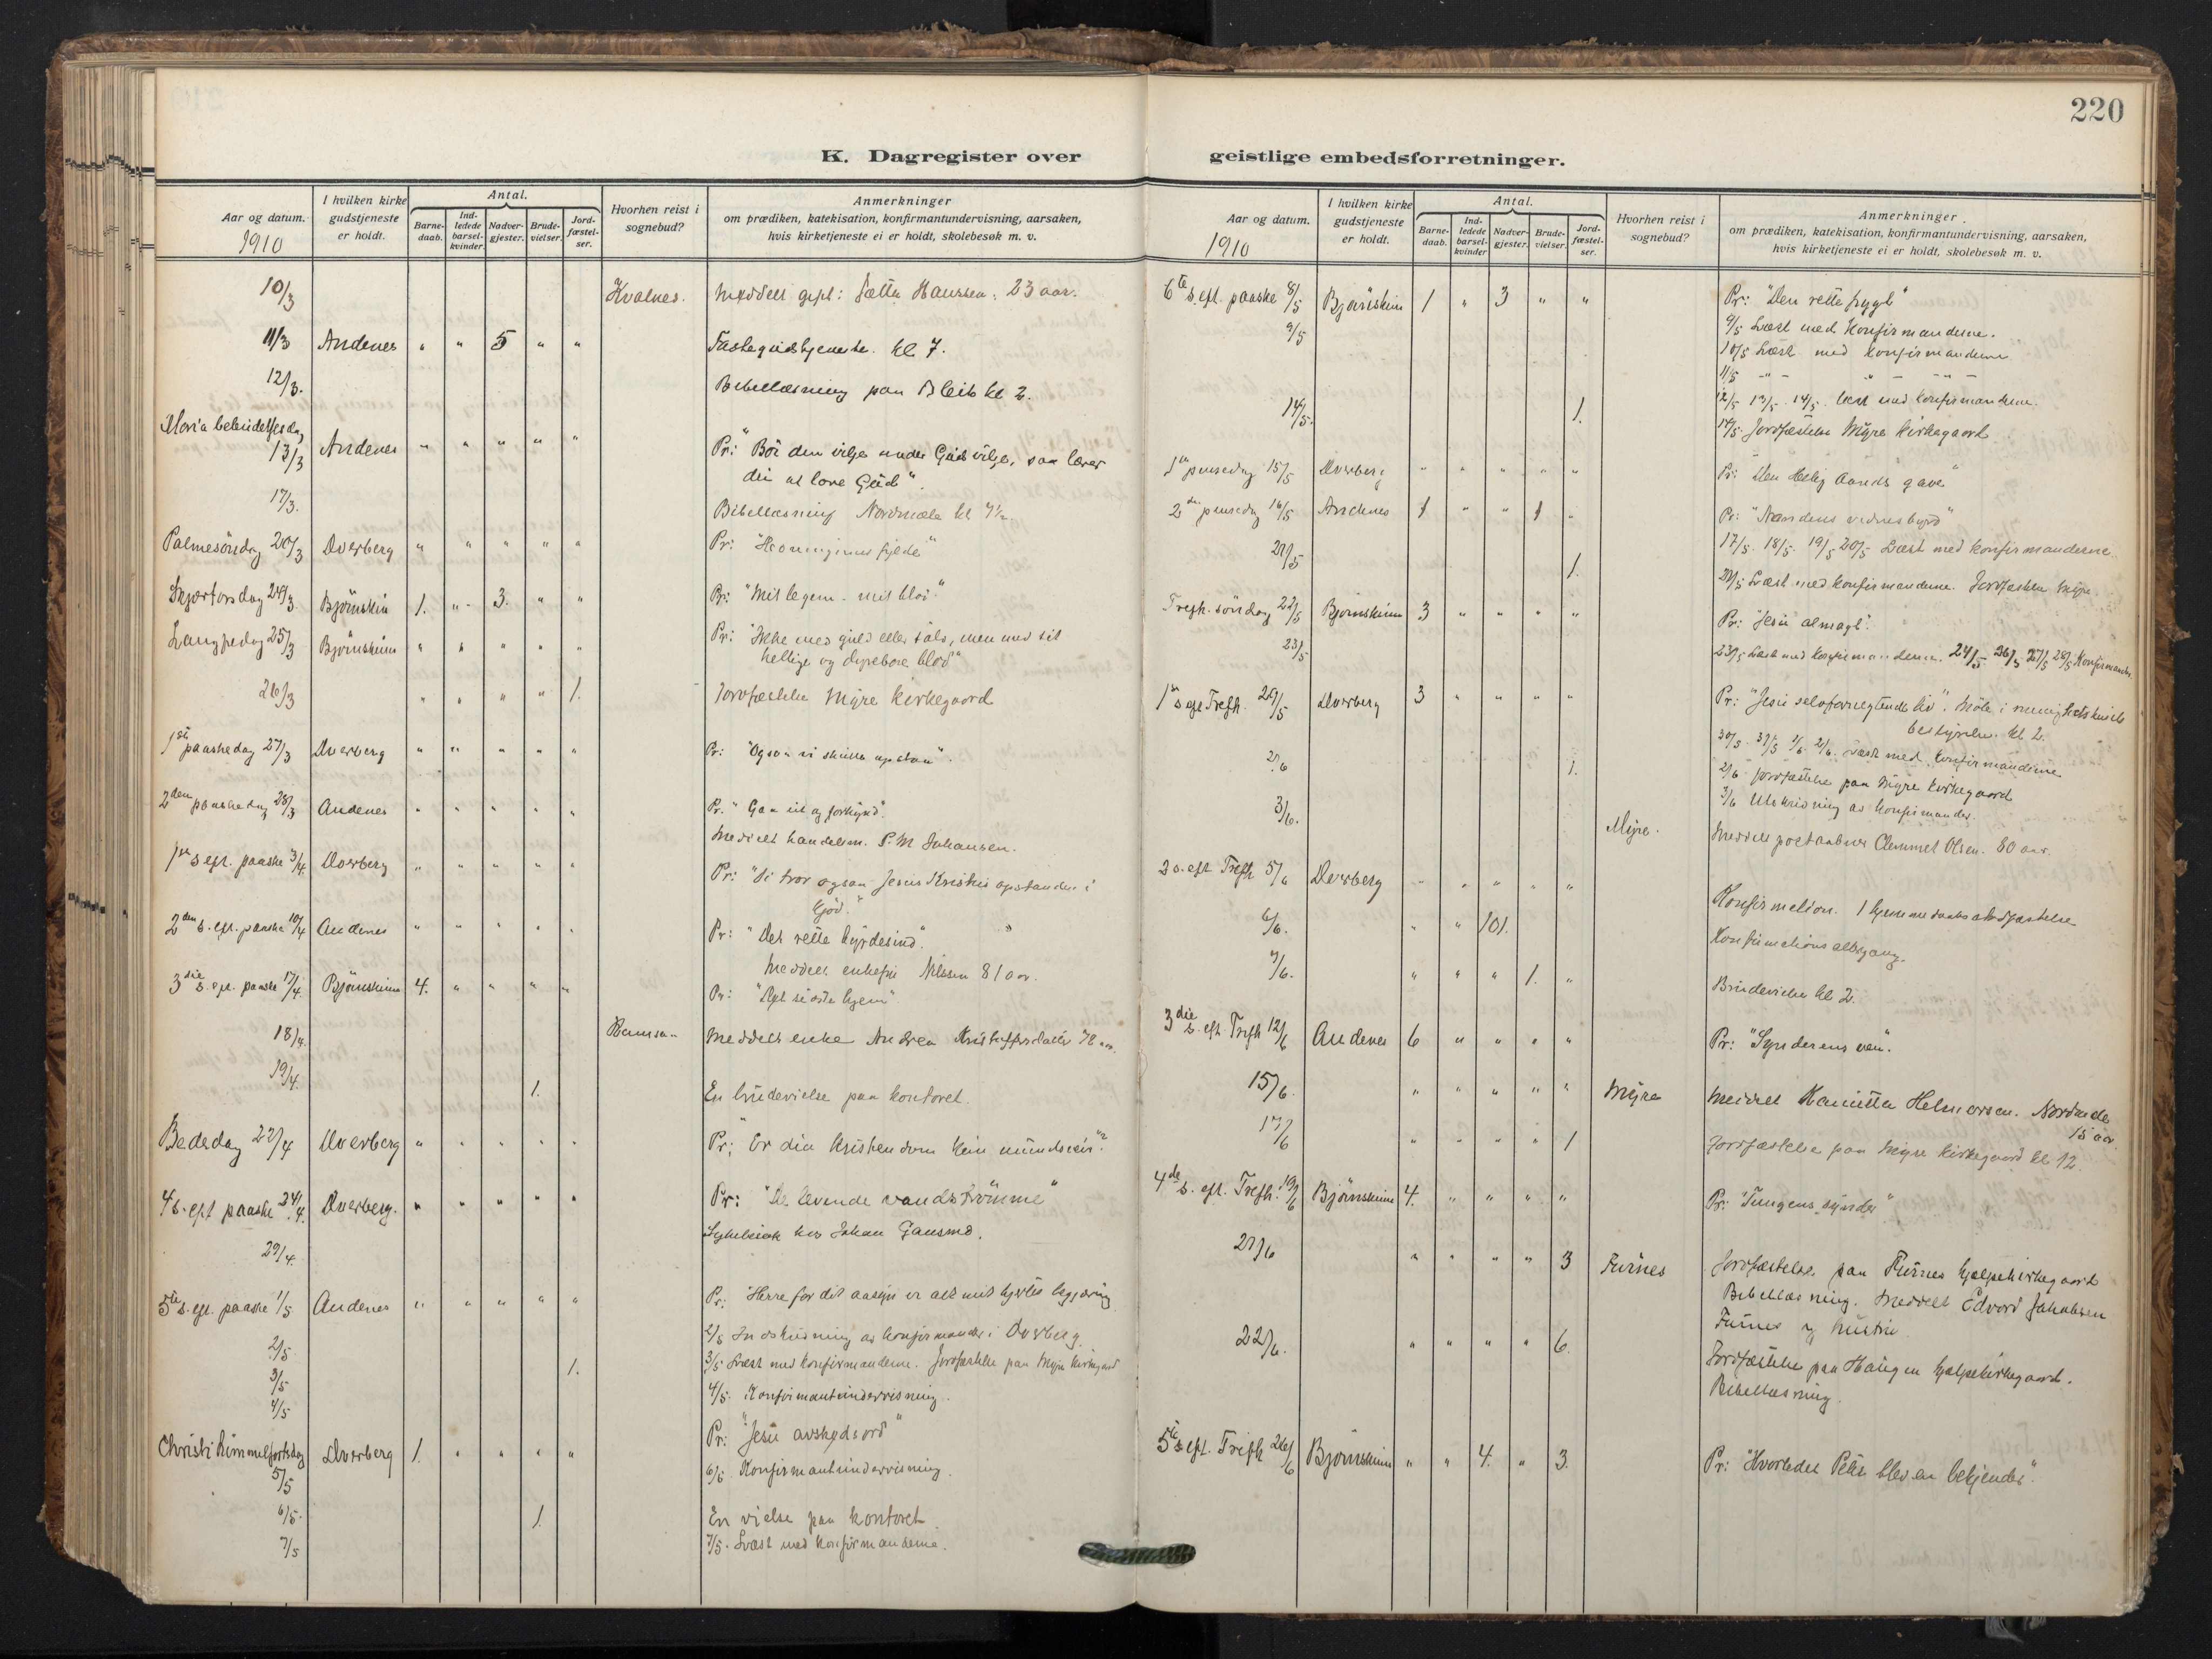 220
K. Dagregister over
geistlige embedsforretninger.
Aar og datum.
1910
I hvilken kirke gudstjeneste er holdt.
Antal.
Barne-daab.
Ind-ledede barsel-kvinder.
Nadver-gjester.
Brude-vielser.
Jord-fæstel-ser.
Hvorhen reist i sognebud?
Anmerkninger
om prædiken, katekisation, konfirmantundervisning, aarsaken,
hvis kirketjeneste ei er holdt, skolebesøk m. v.
10/3 Kvalnes. Meddelt Hanssen. 23 aar.
11/3 Andenes " " 5 " " Fastegudstjeneste. kl 7.
12/3. Bibellæsning paa Bleik kl 2.
Maria bebudelsesdag
13/3 Andenes " " " " " Pr: "Böi den vilje under Guds vilje, saa lærer
du at love Gud".
17/3. Bibellæsning Nordmæle kl 7½
Palmesöndag 20/3 Dverberg " " " " " Pr: "Honningens fylde"
Skjærtorsdag 24/3. Björnskin 1. " 3. " " Pr: "Mit legem - mit blod"
Langfredag 25/3 Björnskinn " " " " " Pr: "Ikke med guld eller sölv, men med sit
hellige og dyrebare blod"
26/3 " " " " 1. Jordfæstelse Myre kirkegaard
1ste paaskedag 27/3 Dverberg " " " " " Pr: "Ogsaa vi skulle opstaa".
2den paaskedag 28/3 Andenes " " " " " Pr. "Gaa ut og forkynd".
Meddelt handelsm. P. M Johansen.
1ste s. eft. paaske 3/4. Dverberg " " " " " Pr: "Vi tror ogsaa Jesus Kristus opstanden i
kjöd."
2den s. eft. paaske 10/4 Andenes " " " " " Pr: "Det rette hyrdesind".
Meddelt enkefru Nilssen 81 aar.
3die s. eft. paaske 17/4. Björnskinn 4. " " " " Pr: "Det sidste hjem"
18/4. Ramsaa Meddelt enke Andrea Kristoffersdatter 78 aar.
19/4. 1. En brudevielse paa kontoret.
Bededag 22/4 Dverberg " " " " " Pr: "Er din kristendom kun mundsveir"?
4 s. eft paaske 24/4. Dverberg. " " " " " Pr: "De levende vandströmme"
29/4. Sykebesök hos Johan
5te s. eft. paaske 1/5 Andenes " " " " " Pr: Herre for dit aasyn er alt mit hjertes begjæring
2/5. 2/5 Indskrivning av konfirmander i Dverberg.
3/5 1. 3/5 Læst med konfirmanderne. Jordfæstelse paa Myre kirkegaard
4/5 4/5. Konfirmantundervisning.
Christi himmelfartsdag
5/5 Dverberg 1. " " " " Pr: "Jesu avskedsord"
6/5 Konfirmantundervisning.
6/5. 1. En vielse paa kontoret
7/5 7/5. Læst med konfirmanderne.
Aar og datum.
1910
I hvilken kirke gudstjeneste er holdt.
Antal.
Barne-daab.
Ind-ledede barsel-kvinder
Nadver-gjester.
Brude-vielser.
Jord-fæstel-ser.
Hvorhen reist i sognebud?
Anmerkninger.
om prædiken, katekisation, konfirmantundervisning, aarsaken,
hvis kirketjeneste ei er holdt, skolebesøk m. v.
6te s. eft. paaske 8/5 Björnskinn 1 " 3 " " Pr: "Den rette frygt"
9/5 9/5 Læst med Konfirmanderne.
10/5 Læst med konfirmanderne
11/5 - " - " - " -
12/5 13/5. 14/5. Læst med konfirmanderne.
14/5. 1. 14/5. Jordfæstelse Myre kirkegaard
1ste pinsedag 15/5 Dverberg " " " " " Pr: "Den Hellig Aands gave"
2den pinsedag 16/5 Andenes 1 " " 1 " Pr: "Aandens vidnesbyrd"
17/5. 18/5. 19/5 20/5 Læst med konfirmanderne.
21/5 1. 21/5 Læst med konfirmanderne. Jordfæstelse Myre.
Trefh. söndag 22/5 Björnskinn 3 " " " " Pr: "Jesu almagt".
23/5 23/5 Læst med konfirmanderne. 24/5 26/5 27/5 28/5 Konfirmander
1ste s. eft Trefh. 29/5 Dverberg 3 " " " " Pr: "Jesu selvfornegtende liv". Möte i menighetshusets
bestyrelse kl 2.
30/5. 31/5 1/6. 2/6. Læst med konfirmanderne
2/6 1. 2/6 Jordfæstelse paa Myre kirkegaard
3/6. 3/6 Utskrivning av konfirmander.
Myre. Meddelt postaabner Clemmet Olsen. 80 aar.
2 s. eft Trefh 5/6 Dverberg " " " " " Konfirmation. 1 hjemmedaabs stadfæstelse
6/6. " " 101. Konfirmationsaltergang.
7/6. " " " 1. " Brudevielse kl 2.
3die s. eft. Trefh 12/6 Andenes 6 " " " " Pr: "Synderens ven".
15/6. " " " " " Myre Meddelt Helmersen. Nordmæle
15 aar
17/6 " " " " 1 Jordfæstelse paa Myre kirkegaard kl 12.
4de s. eft. Trefh. 19/6 Björnskinn 4. " " " " Pr: "Tungens synder"
21/6 " " " " 3 Furnes Jordfæstelse paa Furnes hjælpekirkegaard
Bibellæsning. Meddelt Edvard Jakobsen
Furnes og hustru
22/6. " " " " 6. Jordfæstelse paa Haugen hjælpekirkegaard.
Bibellæsning
5te s. eft. Trefh 26/6 Björnskinn " " 4. " 3. Pr: "Hvorledes Peter blev en bekjender".